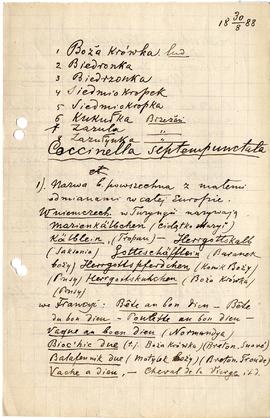 18 30/8 88
1 Boża Krówka lud
2 Biedronka
3 Biedrzonka
4 Siedmiokropek
5 Siedmiokropka
6 Kukułka Brzeziń
7 Zazula "
8 Zazulynka
Coccinella septempunctata
1). Nazwa b. powszechna z małemi
odmianami w całej Europie.
W niemczech w Turyngii nazywają
Marienkälbchen (Cielątko Maryi)
Kälblein, (Tropau) — Herrgottskalb
(Saksonia) Gotteschäflein (Baranek
Boży) Herrgottspferdchen (Konik Boży)
(Prusy) Herrgottskühchen (Boża Krówka)
(Prusy)
we Francyi: Bête au bon dieu — Bête
du bon dieu — Poulette au bon dieu —
Vache au boon dieu (Normandya)
Bioc'hic due (t.j. Boża Krówka) (Breton.
Balafennik due (Motylek Boży) (Breton.
Vache a dieu, — Cheval de la Vierge i t.d.